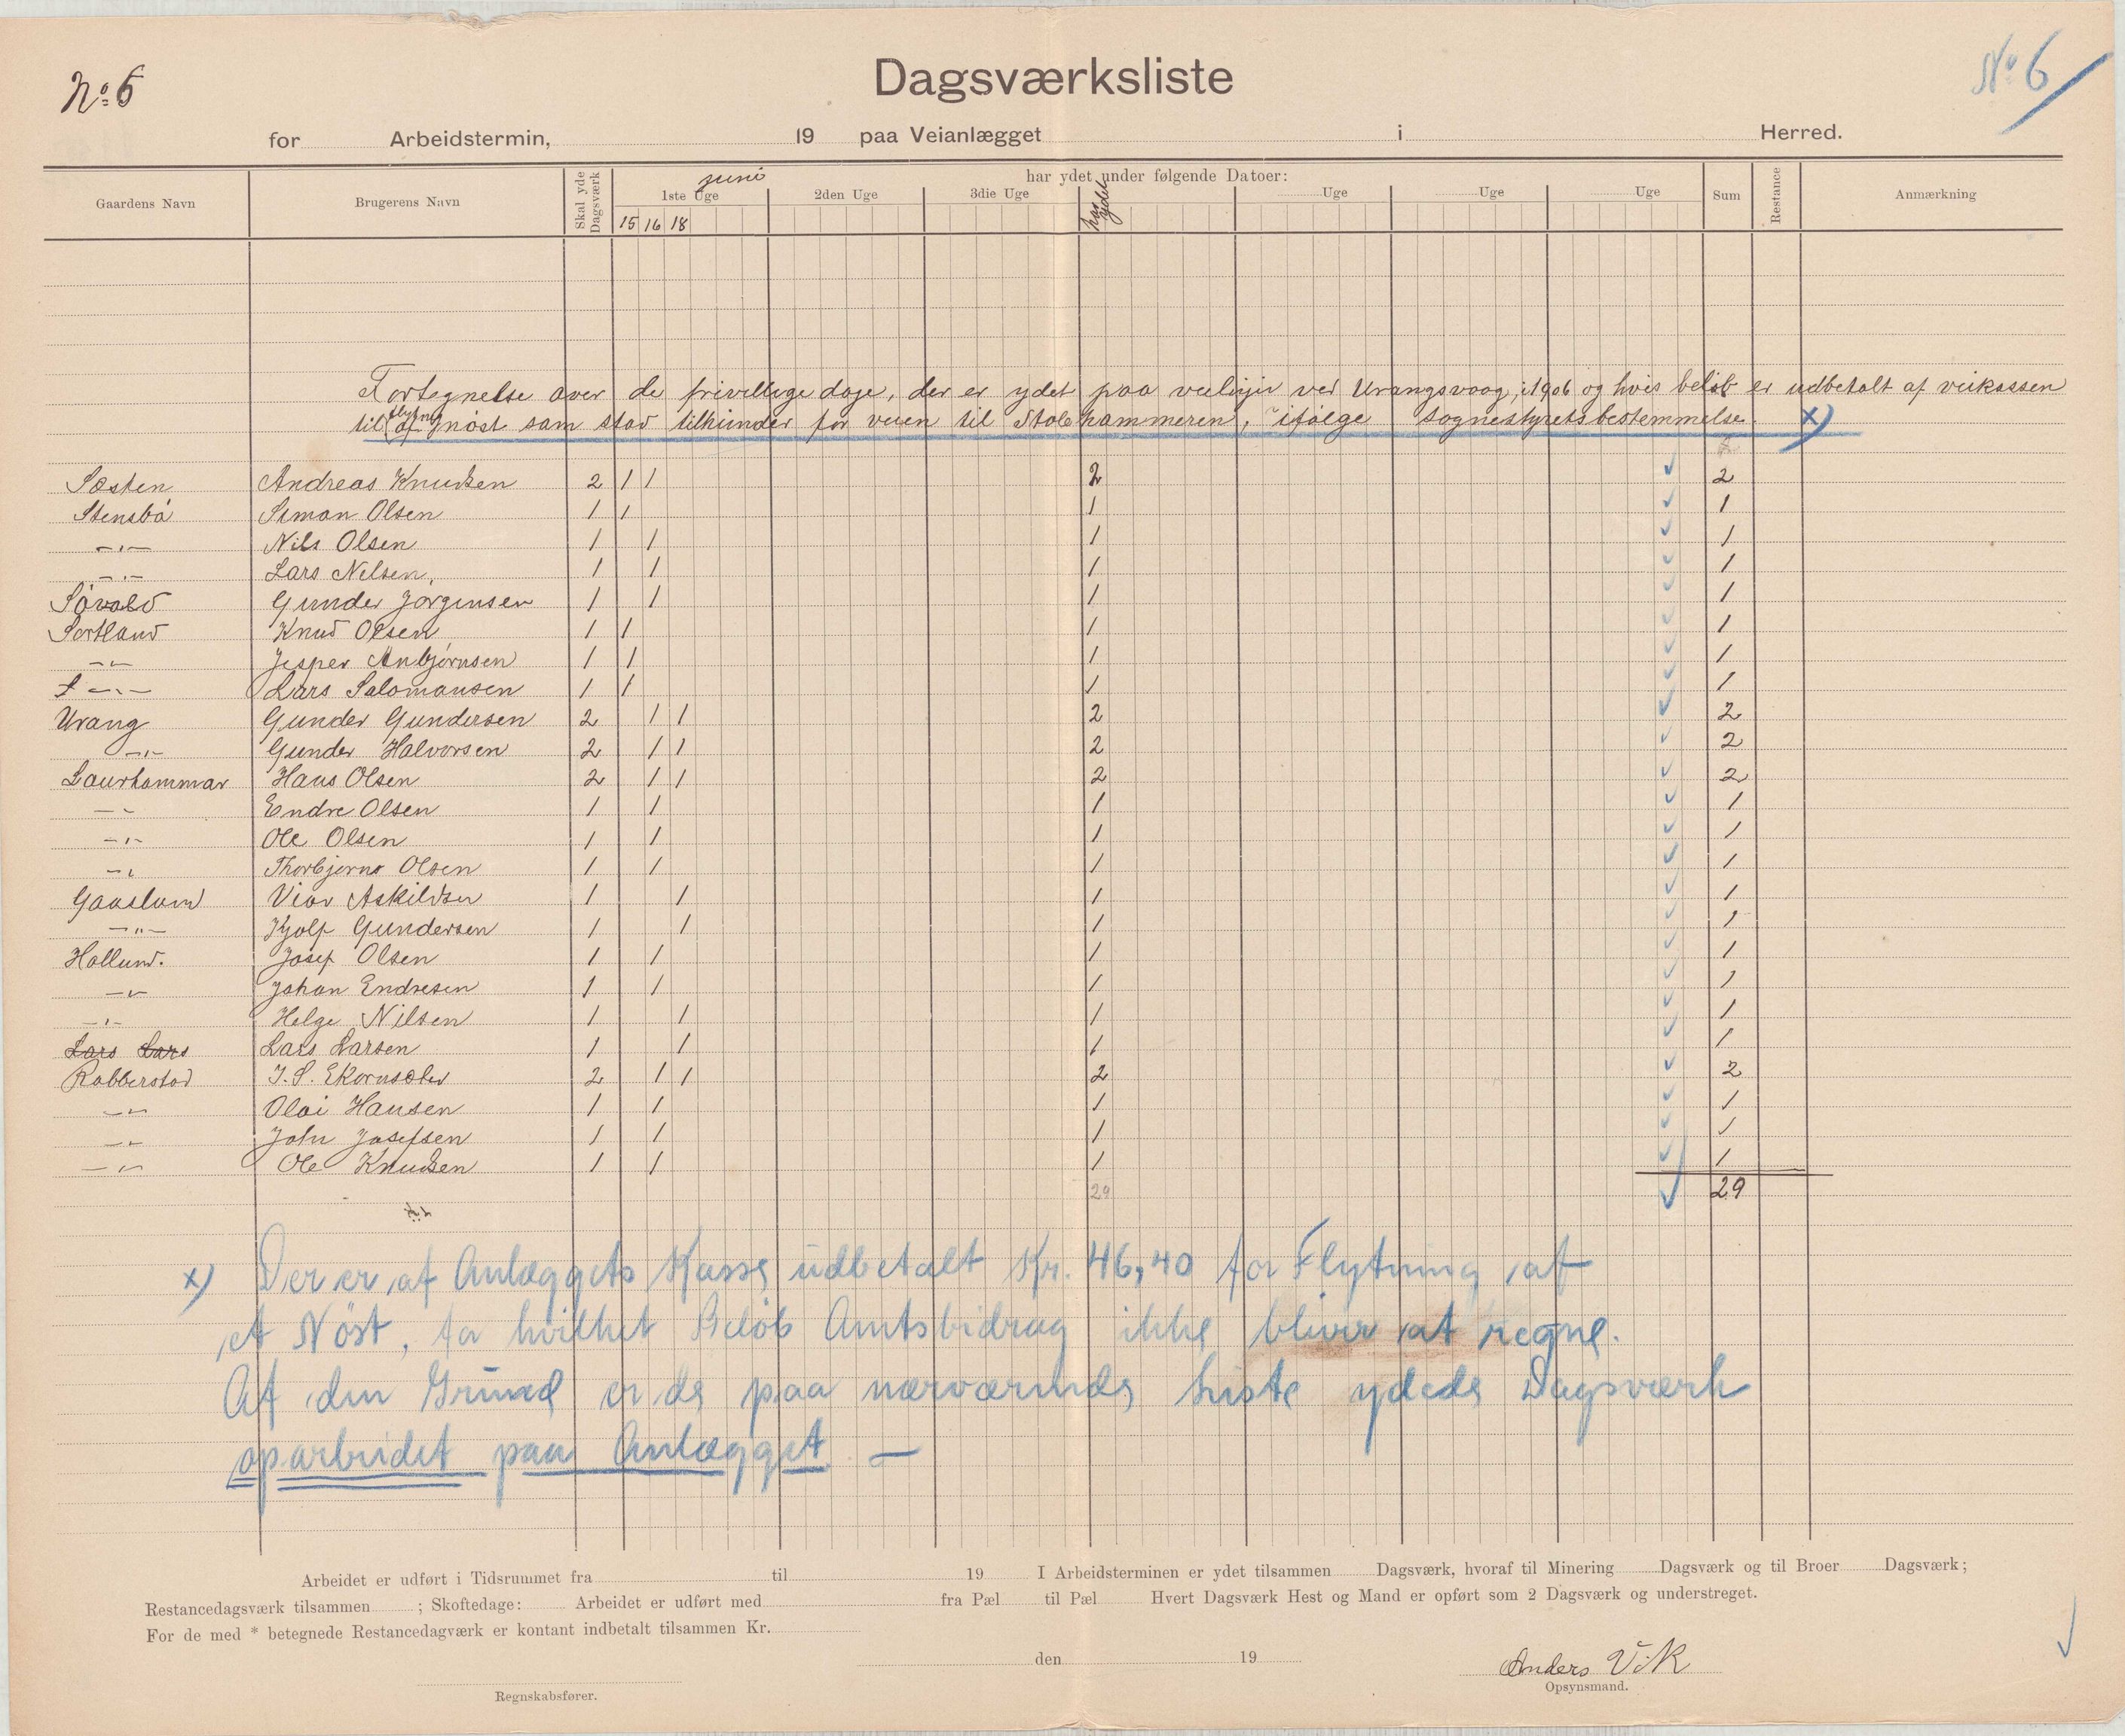 No 6
Dagsværksliste
No 6
for Arbeidstermin, 19 paa Veianlægget i Herred.
Gaardens Navn Brugerens Navn Skal yde Dagsværk har ydet under følgende Datoer: Sum Restance Anmærkning
juni
1ste Uge 2den Uge 3die Uge har ydet Uge Uge Uge
15 16 18
Fortegnelse over de frivillige dage, der er ydet paa veilinjin ved Urangsvaag i 1906 og hvis beløb er udbetalt af veikassen
til flytning af nøst som stod tilhinder for veien til Stolehammeren, ifølge sognestyrets bestemmelse. x)
Sæsten Andreas Knudsen 2 1 1 2 2
Stensbø Simon Olsen 1 1 1 1
-"- Nils Olsen 1 1 1 1
-"- Lars Nelsen, 1 1 1 1
Søvold Gunder Jørgensen 1 1 1 1
Sortland Knud Olsen 1 1 1 1
-"- Jesper Anbjørnsen 1 1 1 1
-"- Lars Salomonsen 1 1 1 1
Urang Gunder Gundersen 2 1 1 2 2
-"- Gunder Halvorsen 2 1 1 2 2
Laurhammar Hans Olsen 2 1 1 2 2
-"- Endre Olsen 1 1 1 1
-"- Ole Olsen 1 1 1 1
-"- Thorbjørn Olsen 1 1 1 1
Gaaslund Vier Askildsen 1 1 1 1
-"- Kjolf Gundersen 1 1 1 1
Hollund. Josef Olsen 1 1 1 1
-"- Johan Endresen 1 1 1 1
-"- Helge Nilsen 1 1 1 1
Lars Lars Lars Larsen 1 1 1 1
Robberstad J. S. Ekornsæter 2 1 1 2 2
-"- Olai Hansen 1 1 1 1
-"- John Josefsen 1 1 1 1
-"- Ole Knudsen 1 1 1 1
29 29
x) Der er af Anlæggets Kasse udbetalt Kr. 46,40 for Flytning af
et Nöst, for hvilket Beløb Amtsbidrag ikke bliver at regne.
Af den Grund er de paa nærværende Liste ydede Dagsværk
oparbeidet paa Anlægget —
Arbeidet er udført i Tidsrummet fra til 19 I Arbeidsterminen er ydet tilsammen Dagsværk, hvoraf til Minering Dagsværk og til Broer Dagsværk;
Restancedagsværk tilsammen ; Skoftedage: Arbeidet er udført med fra Pæl til Pæl Hvert Dagsværk Hest og Mand er opført som 2 Dagsværk og understreget.
For de med * betegnede Restancedagværk er kontant indbetalt tilsammen Kr.
den 19
Anders Vik
Regnskabsfører. Opsynsmand.